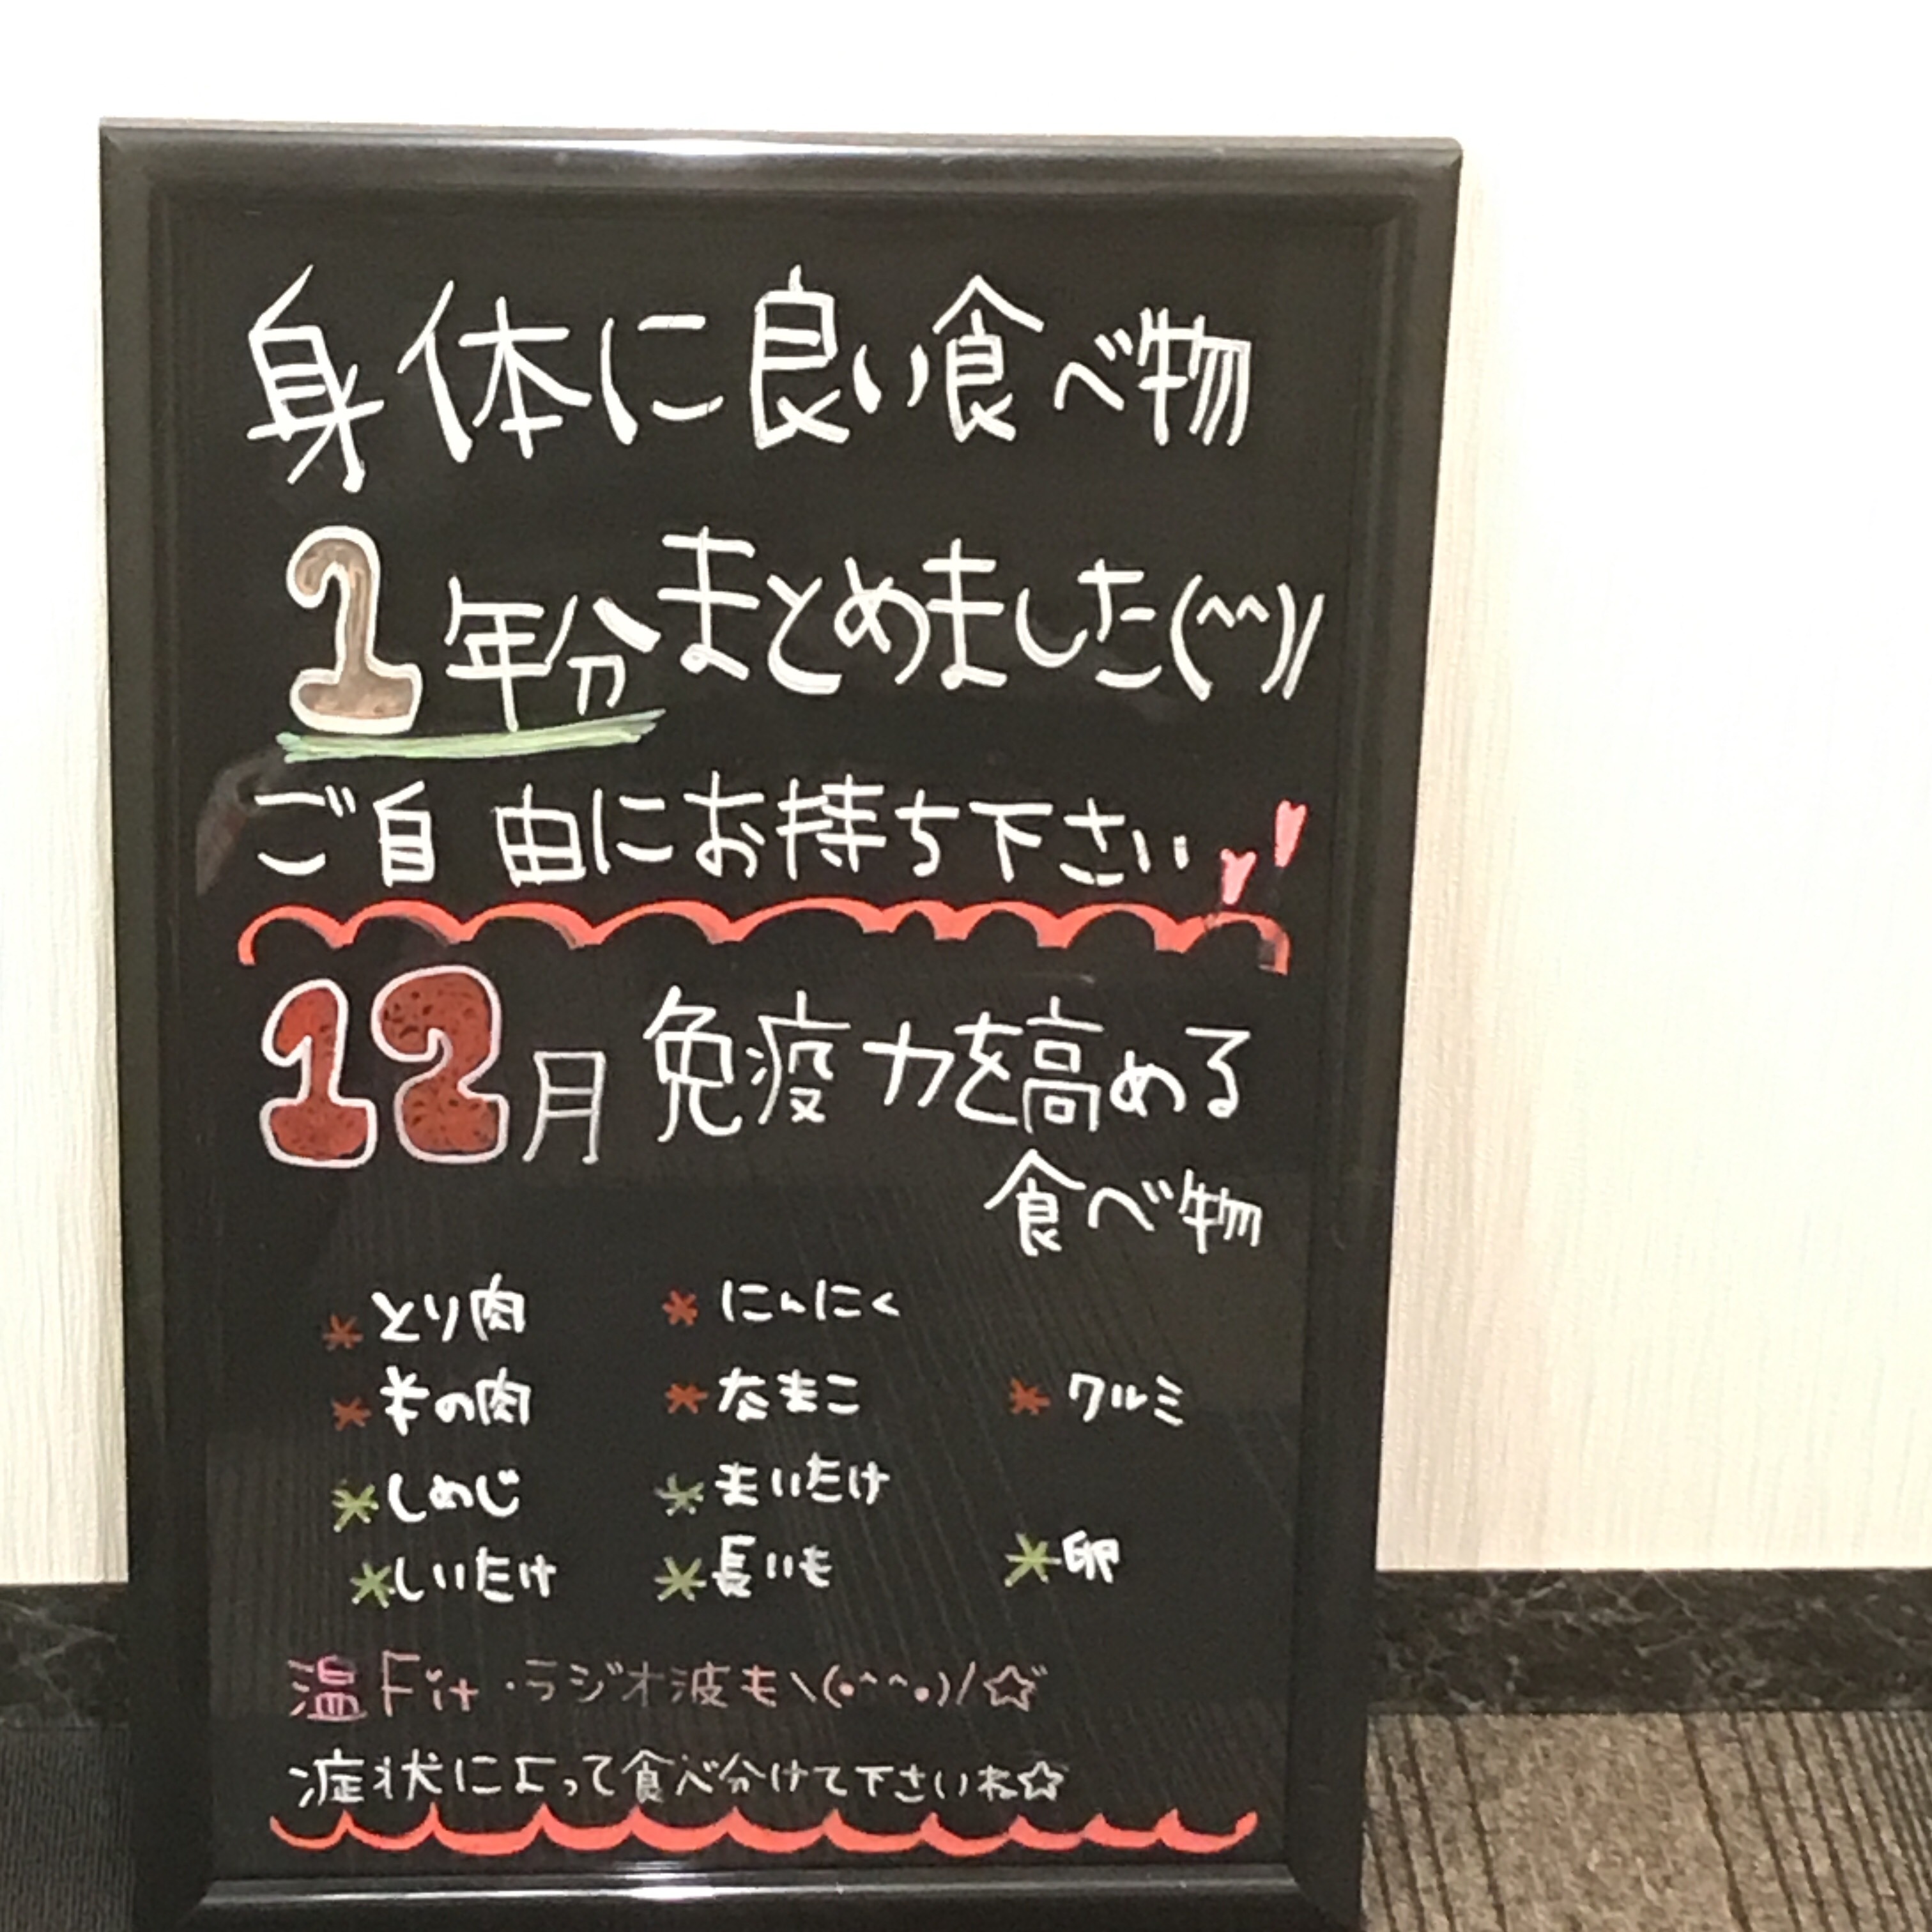 身体に良い食べ物
1年分まとめました(^^)/
ご自由にお持ち下さい
12月 免疫力を高める
食べ物
*とり肉 *にんにく
*羊の肉 *たまこ *クルミ
*しめじ *まいたけ
*しいたけ *長いも *卵
温Fit・ラジオ波も\(•^^•)/☆
症状によって食べ分けて下さいね☆